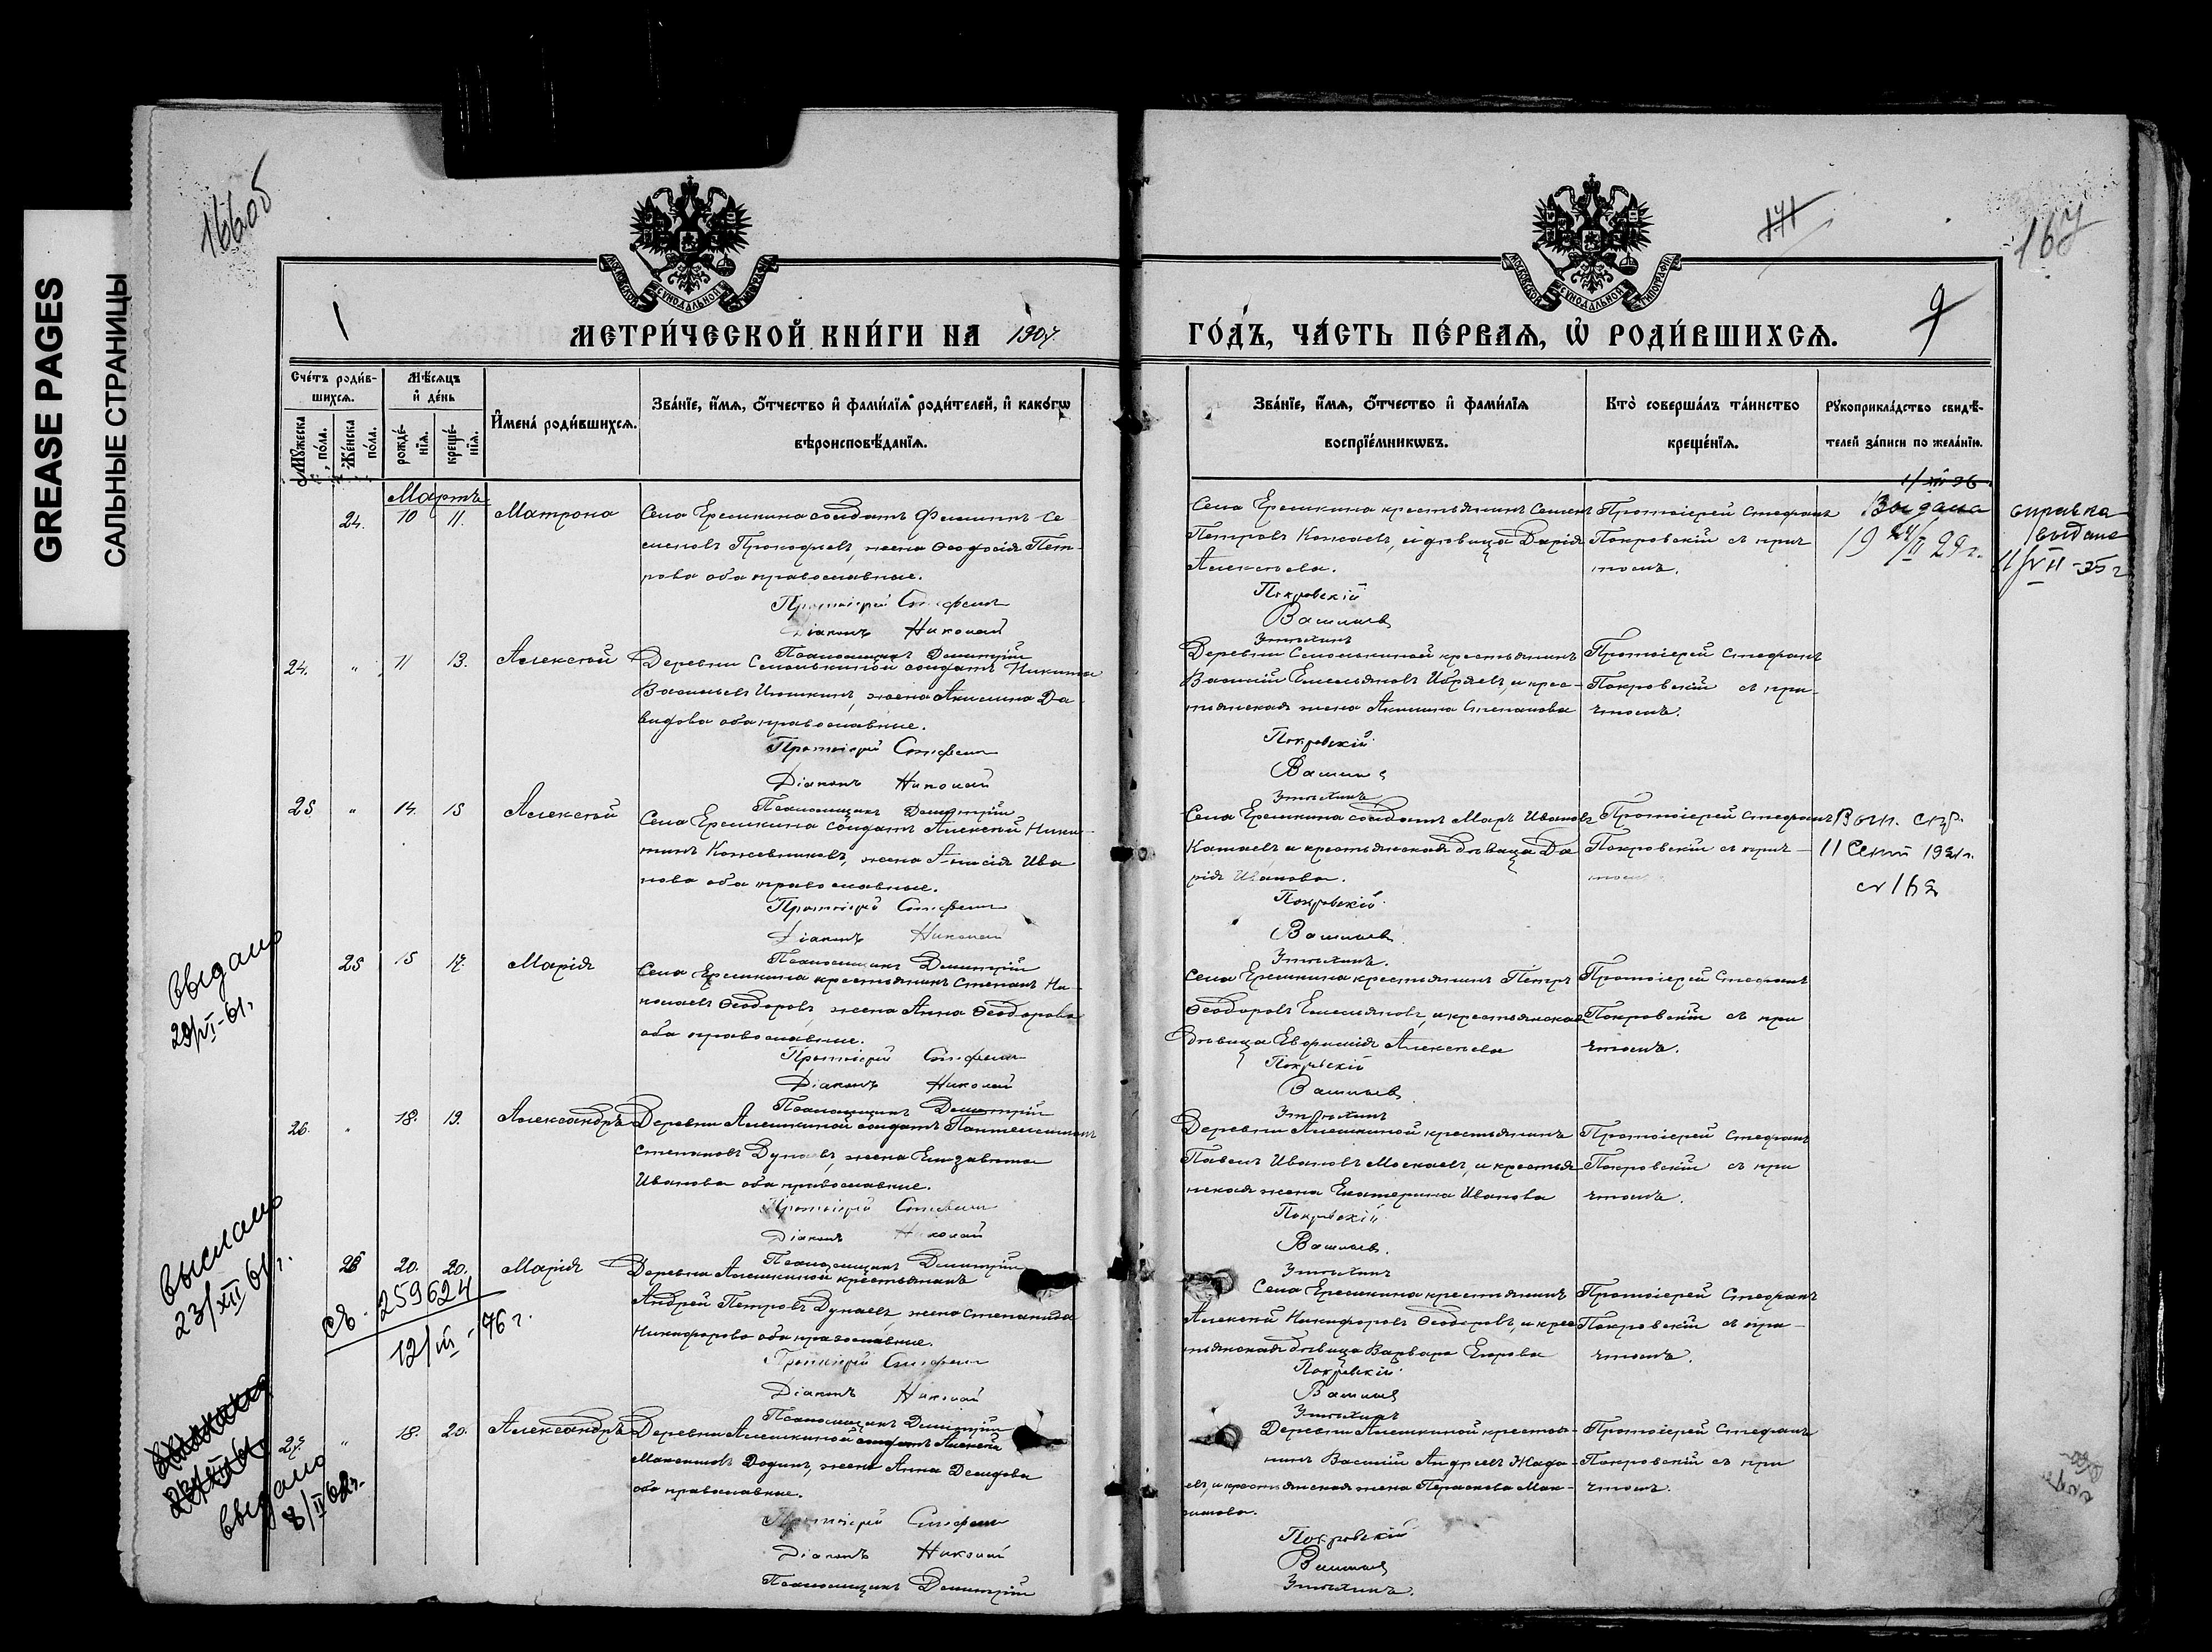 GREASE PAGES
САЛЬНЫЕ СТРАНИЦЫ
166об
171
167
МОСКОВСКОЙ СУНОДАЛЬНОЙ ТИПОГРАФІИ
МОСКОВСКОЙ СУНОДАЛЬНОЙ ТИПОГРАФІИ
МЕТРИ́ЧЕСКОЙ КНИ́ГИ НА 1907.
ГО́ДЪ, ЧА́СТЬ ПЕ́РВАѦ, Ѡ҆ РОДИ́ВШИХСѦ.
9
Сче́тъ роди́в-
шихсѧ.
Мꙋ́жеска по́ла.
Же́нска по́ла.
Мѣ́сѧцъ
и҆ де́нь
рожде́-
нїѧ.
креще́-
нїѧ.
И҆мена̀ роди́вшихсѧ.
Зва́нїе, и҆́мѧ, ѻ҆́тчество и҆ фами́лїѧ роди́телей, и҆ како́гѡ
вѣроисповѣ́данїѧ.
Зва́нїе, и҆́мѧ, ѻ҆́тчество и҆ фами́лїѧ
воспрїе́мникѡвъ.
Кто̀ соверша́лъ та́инство
креще́нїѧ.
Рꙋкоприкла́дство свидѣ́-
телей за́писи по жела́нїю.
Мартъ
24. 10 11. Матрона
Села Еремкина солдатъ Филиппъ Се
меновъ Прокофьевъ, жена Ѳеодосія Пет-
рова оба православные.
Протоіерей Стефанъ
Діаконъ Николай
Псаломщикъ Димитрій
Села Еремкина крестьянинъ Семенъ
Петровъ Кожаевъ, и дѣвица Дарія
Алексѣева.
Покровскій
Васильев
Утѣхинъ
Протоіерей Стефанъ
Покровскій съ прич
томъ.
Выдана
справка
выдана
24. " 11 13. Алексѣй
Деревни солдатъ Никита
Васильевъ жена Акилина Да
видова оба православные.
Протоіерей Стефанъ
Діаконъ Николай
Псаломщикъ Димитрій
Деревни крестьянинъ
Василій Емельяновъ и крес-
тьянская жена Акилина Степанова
Покровскій
Васильев
Утѣхинъ
Протоіерей Стефанъ
Покровскій съ при-
чтомъ.
25 " 14. 15 Алексѣй
Села Еремкина солдатъ Алексѣй Ники-
тинъ Кожевниковъ, жена Анисія Ива
нова оба православные.
Протоіерей Стефанъ
Діаконъ Николай
Псаломщикъ Димитрій
Села Еремкина солдатъ Иванов
и крестьянская дѣвица Да
рія Иванова.
Покровскій
Васильев
Утѣхинъ.
Протоіерей Стефанъ
Покровскій съ прич-
томъ
выдано
29/VI-61.
25 15 17. Марія
Села Еремкина крестьянинъ Степанъ Ни-
колаевъ Ѳеодоровъ, жена Анна Ѳеодорова
оба православные.
Протоіерей Стефанъ
Діаконъ Николай
Псаломщикъ Димитрій
Села Еремкина крестьянинъ Петръ
Ѳеодоровъ Емельяновъ, и крестьянская
дѣвица Евфимія Алексѣева
Покровскій
Васильев
Утѣхинъ
Протоіерей Стефанъ
Покровскій съ при
чтомъ.
26. " 18. 19. Александръ
Деревни Алешкиной солдатъ Пантелеимонъ
Степановъ Дунаевъ, жена Елизавета
Иванова оба православные.
Протоіерей Стефанъ
Діаконъ Николай
Псаломщикъ Димитрій
Деревни Алешкиной крестьянинъ
Павелъ Ивановъ Москаевъ, и крестья
нская жена Екатерина Иванова
Покровскій
Васильев.
Утѣхинъ
Протоіерей Стефанъ
Покровскій съ при
чтомъ.
выслано
23/XII 61г.
26 20. 20. Марія
259624
12/III-76г.
Деревни Алешкиной крестьянинъ
Андрей Петровъ Дунаевъ, жена Степанида
Никифорова оба православные.
Протоіерей Стефанъ
Діаконъ Николай
Псаломщикъ Димитрій
Села Еремкина крестьянинъ
Алексѣй Никифоровъ Ѳеодоровъ, и крес
тьянская дѣвица Варвара Егорова
Покровскій
Васильев
Утѣхинъ
Протоіерей Стефанъ
Покровскій съ при-
чтомъ.
выдано
8/II 62г.
27. " 18. 20. Александръ
Деревни Алешкиной солдатъ Алексѣй
Максимовъ жена Анна Демидова
оба православные.
Протоіерей Стефанъ
Діаконъ Николай
Псаломщикъ Димитрій
Деревни Алешкиной крестья-
нинъ Василій Андреевъ
и крестьянская жена Параскева Мак-
симова.
Покровскій
Васильев
Утѣхинъ.
Протоіерей Стефанъ
Покровскій съ при
чтомъ.